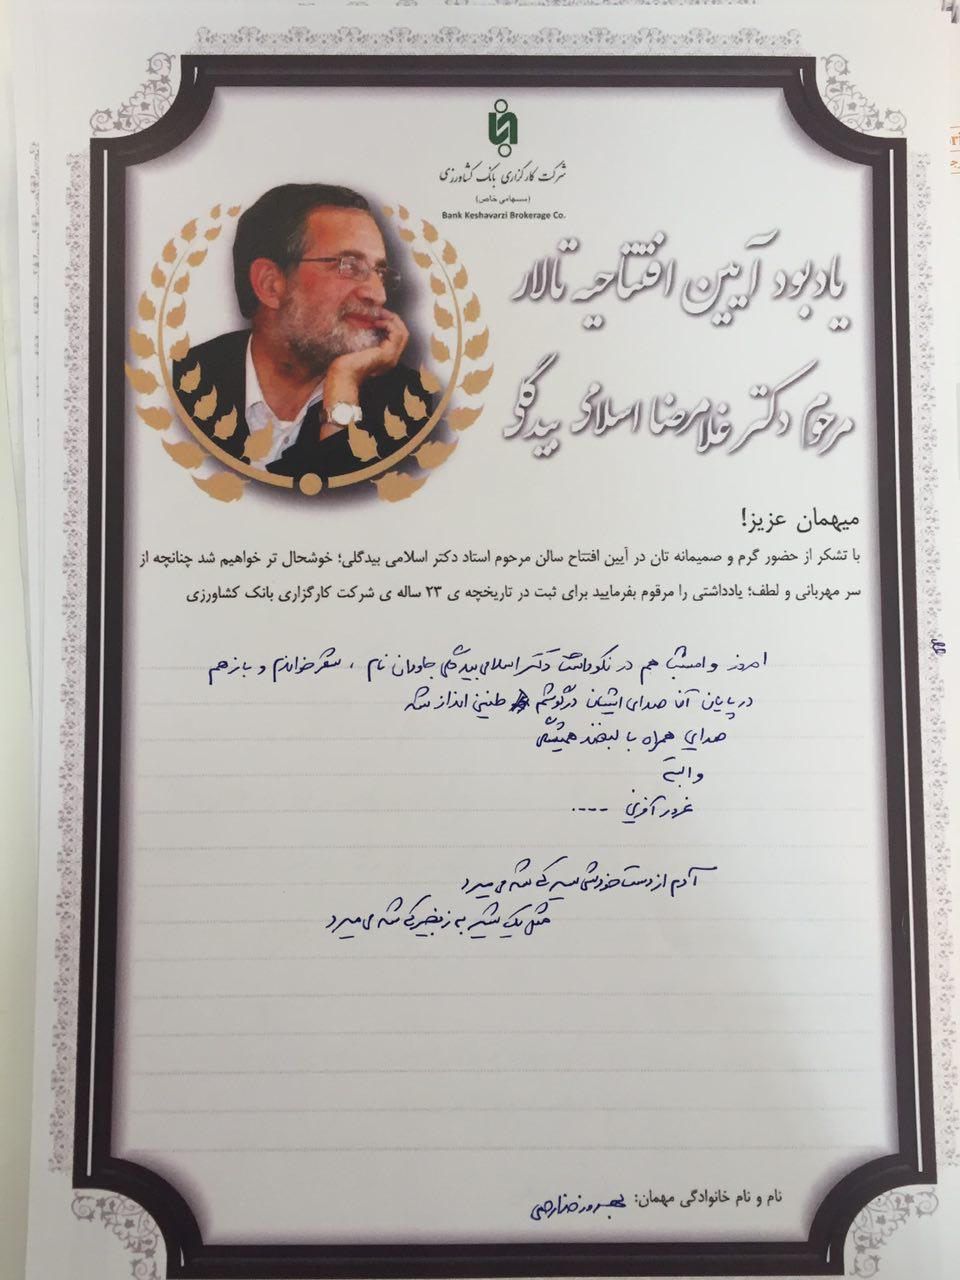 شرکت کارگزاری بانک کشاورزی
(سهامی خاص)
Bank Keshavarzi Brokerage Co.
یادبود آیین افتتاحیه تالار
مرحوم دکتر غلامرضا اسلامی بیدگلی
میهمان عزیز!
با تشکر از حضور گرم و صمیمانه تان در آیین افتتاح سالن مرحوم استاد دکتر اسلامی بیدگلی؛ خوشحال تر خواهیم شد چنانچه از
سر مهربانی و لطف؛ یادداشتی را مرقوم بفرمایید برای ثبت در تاریخچه ی ۲۳ ساله ی شرکت کارگزاری بانک کشاورزی
امروز و امشب هم در نکوداشت دکتر اسلامی بیدگلی جاودان نام ، شعر خواندم و باز هم
در پایان آن صدای ایشان در گوشم طنین انداز شد
صدایی همراه با لبخند همیشگی
و البته
غرور آفرین ....
آدم از دست خودش سیر که شد می میرد
مثل یک شیر به زنجیر که شد می میرد
نام و نام خانوادگی مهمان: بهروز